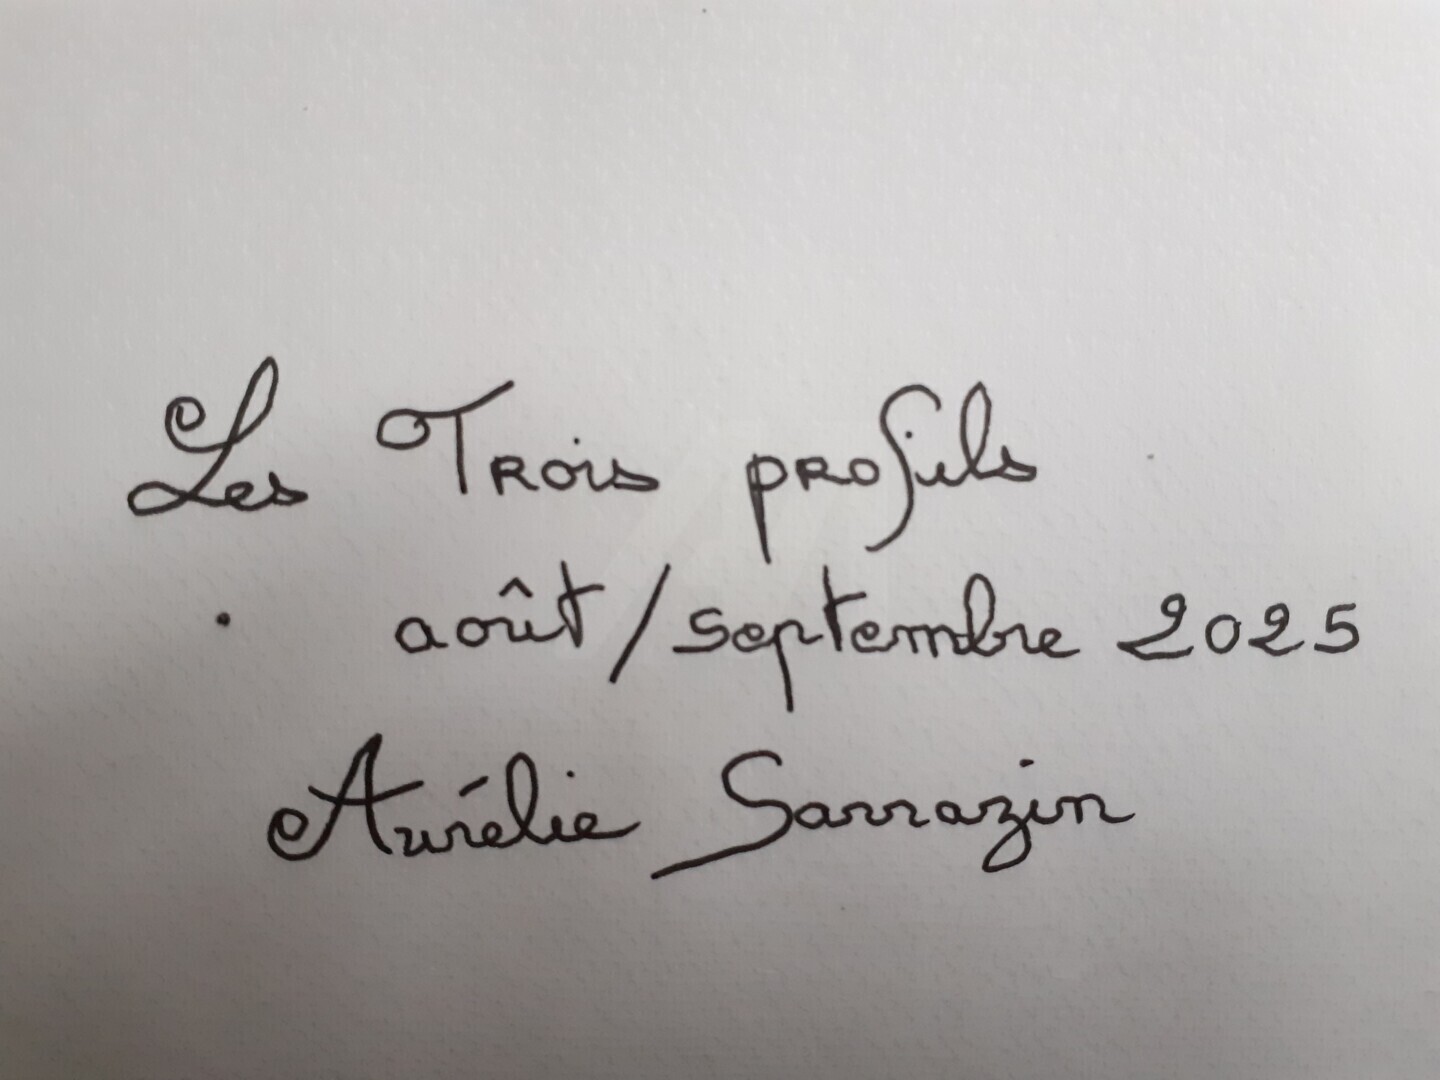 Les Trois profils
août/septembre 2025
Aurélie Sarrazin